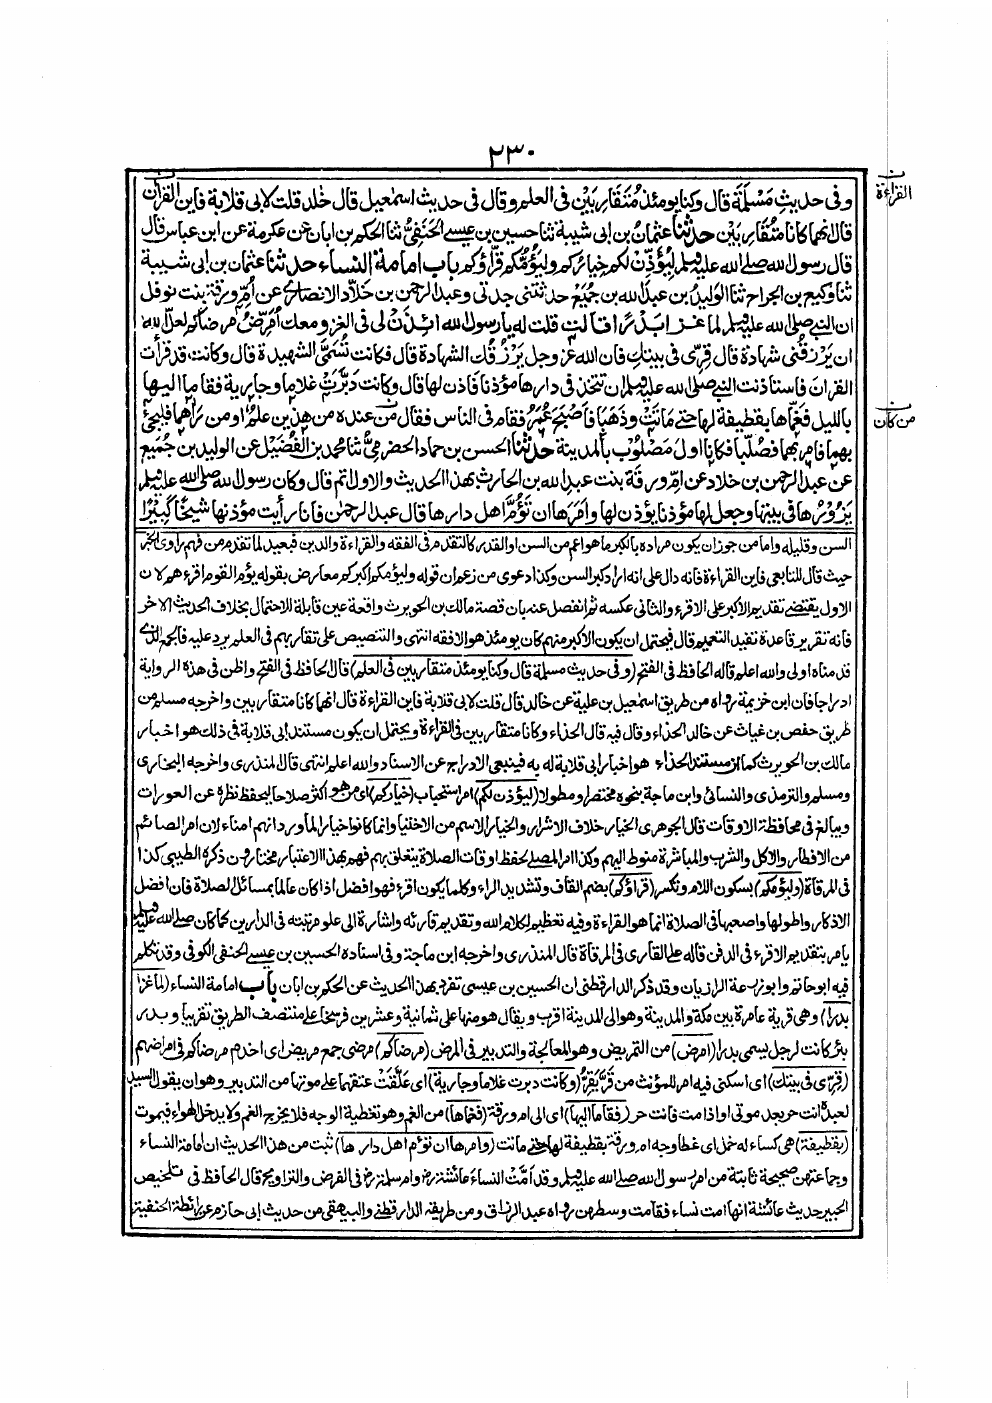 ٢٣٠
وفى حديث مَسْلَمَةَ قال وكنا يومئذ مُتَقَارِبَيْن فى العلم وقال فى حديث اسمٰعيل قال خٰلد قلت لابى قلابة فاين القرآن
القراءة
قال انهما كانا متُقَارِبَيْن حدثنا عثمان بن ابى شيبة ثنا حسين بن عيسے الحَنَفِىُّ ثنا الحكم بن ابان عن عكرمة عن ابن عباس قال
قال رسول الله صلے الله عليه وسلم لِيُؤَذِّنْ لكم خِيَارُكم وليَؤُمَّكم قُرَّاؤكم باب امامة النساء حدثنا عثمان بن ابى شيبة
ثنا وكيع بن الجراح ثنا الوليد بن عبد الله بن جُمَيْعٍ حدثتنى جدتى وعبد الرحمن بن خلاّد الانصارى عن اُمِّ ورقة بنت نوفل
ان النبى صلے الله عليه وسلم لما غزا بَدْرًا قالت قلت له يا رسول الله ائذَنْ لى فى الغزو معك اُمَرِّضُ مرضاكم لعل الله
ان يَرْزقُنى شهادة قال قِرِّى فى بيتكِ فان الله عزّ وجل يَرْزُقك الشهادة قال فكانت تُسَمَّى الشهيدة قال وكانت قد قرأت
القرآن فاستاذنت النبى صلے الله عليه وسلم ان تتخذ فى دارها مؤذنا فاذن لها قال وكانت دبَّرَتْ غلاما وجارية فقاما اليها
بالليل فغَمَّاها بقطيفة لها حتے ماتَتْ وذهبا فاَصْبَحَ عُمَرُ فقام فى الناس فقال من عنده من هذين علمٌ او من رآهما فليجئ
من كان
بهما فامر بهما فصُلِبَا فكانا اول مَصْلُوْب بالمدينة حدثنا الحسن بن حماد الحضرمىُّ ثنا محمد بن الفُضَيْل عن الوليد بن جُمَيْع
عن عبد الرحمٰن بن خلاد عن امّ ورقة بنت عبد الله بن الحارث بهذا الحديث والاول اتم قال وكان رسول الله صلے الله عليه وسلم
يَزُوْرُها فى بيتها وجعل لها مؤذنا يؤذن لها واَمَرَها ان تَؤُمَّ اهل دارها قال عبد الرحمٰن فانا رأيت مؤذنها شيخًا كبيرًا
السن وقليله واما من جوز ان يكون مراده بالكبر ما هو اعم من السن او القدر كالتقدم فى الفقه والقراءة والدين فبعيد لما تقدم من فهم راوى الخبر
حيث قال للتابعى فاين القراءة فانه دال على انه اراد كبر السن وكذا دعوى من زعم ان قوله وليؤمكم اكبركم معارض بقوله يؤم القوم اقرءهم لان
الاول يقتضے تقديم الاكبر على الاقرء والثانى عكسه ثم انفصل عنه بان قصة مالك بن الحويرث واقعة عين قابلة للاحتمال بخلاف الحديث الاخر
فانه تقرير قاعدة تفيد التعميم قال فيحتمل ان يكون الاكبر منهم كان يومئذ هو الافقه انتهى والتنصيص على تقاربهم فى العلم يرد عليه فالجمع الذى
قدمناه اولى والله اعلم قاله الحافظ فى الفتح (وفى حديث مسلمة قال وكنا يومئذ متقاربين فى العلم) قال الحافظ فى الفتح واظن فى هذه الرواية
ادراجا فان ابن خزيمة رواه من طريق اسمعيل بن علية عن خالد قال قلت لابى قلابة فاين القراءة قال انهما كانا متقاربين واخرجه مسلم من
طريق حفص بن غياث عن خالد الحذاء وقال فيه قال الحذاء وكانا متقاربين فى القراءة ويحتمل ان يكون مستند ابى قلابة فى ذلك هو اخبار
مالك بن الحويرث كما ان مستند الحذاء هو اخبار ابى قلابة له به فينبغى الادراج عن الاسناد والله اعلم انتهى قال المنذرى واخرجه البخارى
ومسلم والترمذى والنسائى وابن ماجة بنحوه مختصر ومطولا (ليؤذن لكم) امر استحباب (خياركم) اى من هو اكثر صلاحا ليحفظ نظره عن العورات
ويبالغ فى محافظة الاوقات قال الجوهرى الخيار خلاف الاشرار والخيار الاسم من الاختيار وانما كانوا خيارا لما ورد انهم امناء لان امر الصائم
من الافطار والاكل والشرب والمباشرة منوط اليهم وكذا امر المصلے لحفظ اوقات الصلاة يتعلق بهم فهم بهذا الاعتبار مختارون ذكره الطيبى كذا
فى المرقاة (وليؤمكم) بسكون اللام وتكسر (قراؤكم) بضم القاف وتشديد الراء وكلما يكون اقرء فهو افضل اذا كان عالما بمسائل الصلاة فان افضل
الاذكار واطولها واصعبها فى الصلاة انما هو القراءة وفيه تعظيم لكلام الله وتقديم قارئه واشارة الى علو مرتبته فى الدارين كما كان صلے الله عليه وسلم
يامر بتقديم الاقرء فى الدفن قاله على القارى فى المرقاة قال المنذرى واخرجه ابن ماجة وفى اسناده الحسين بن عيسے الحنفى الكوفى وقد تكلم
فيه ابو حاتم وابو زرعة الرازيان وقد ذكر الدارقطنى ان الحسين بن عيسى تفرد بهذا الحديث عن الحكم بن ابان باب امامة النساء (لما غزا
بدرا) وهى قرية عامرة بين مكة والمدينة وهو الى المدينة اقرب ويقال هو منها على ثمانية وعشرين فرسخا على منتصف الطريق تقريبا وبدر
بئر كانت لرجل يسمى بدرا (امرض) من التمريض وهو المعالجة والتدبير فى المرض (مرضاكم) مرضى جمع مريض اى اخدم مرضاكم فى امراضهم
(قرى فى بيتك) اى اسكنى فيه امر للمؤنث من قَرَّ يَقَرُّ (وكانت دبرت غلاما وجارية) اى عَلَّقَتْ عتقهما على موتها من التدبير وهو ان يقول السيد
لعبده انت حر بعد موتى او اذا مت فانت حر (فقاما اليها) اى الى ام ورقة (فغماها) من الغم وهو تغطية الوجه فلا يخرج الغم ولا يدخل الهواء فيموت
(بقطيفة) هى كساء له خمل اى غطا وجه ام ورقة بقطيفة لها حتے ماتت (وامرها ان تؤم اهل دارها) ثبت من هذا الحديث ان امامة النساء
وجماعتهن صحيحة ثابتة من امر رسول الله صلے الله عليه وسلم وقد اَمَّتْ النساء عائشة رض وام سلمة رض فى الفرض والتراويح قال الحافظ فى تلخيص
الحبير حديث عائشة انها امت نساء فقامت وسطهن رواه عبد الرزاق ومن طريقه الدارقطنے والبيهقى من حديث ابى حازم عن رائطة الحنفية